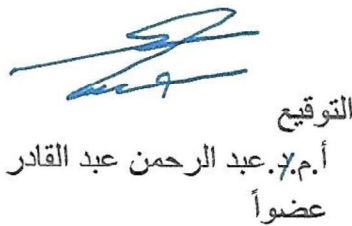 التوقيع
أ.م.د.عبد الرحمن عبد القادر
عضواً